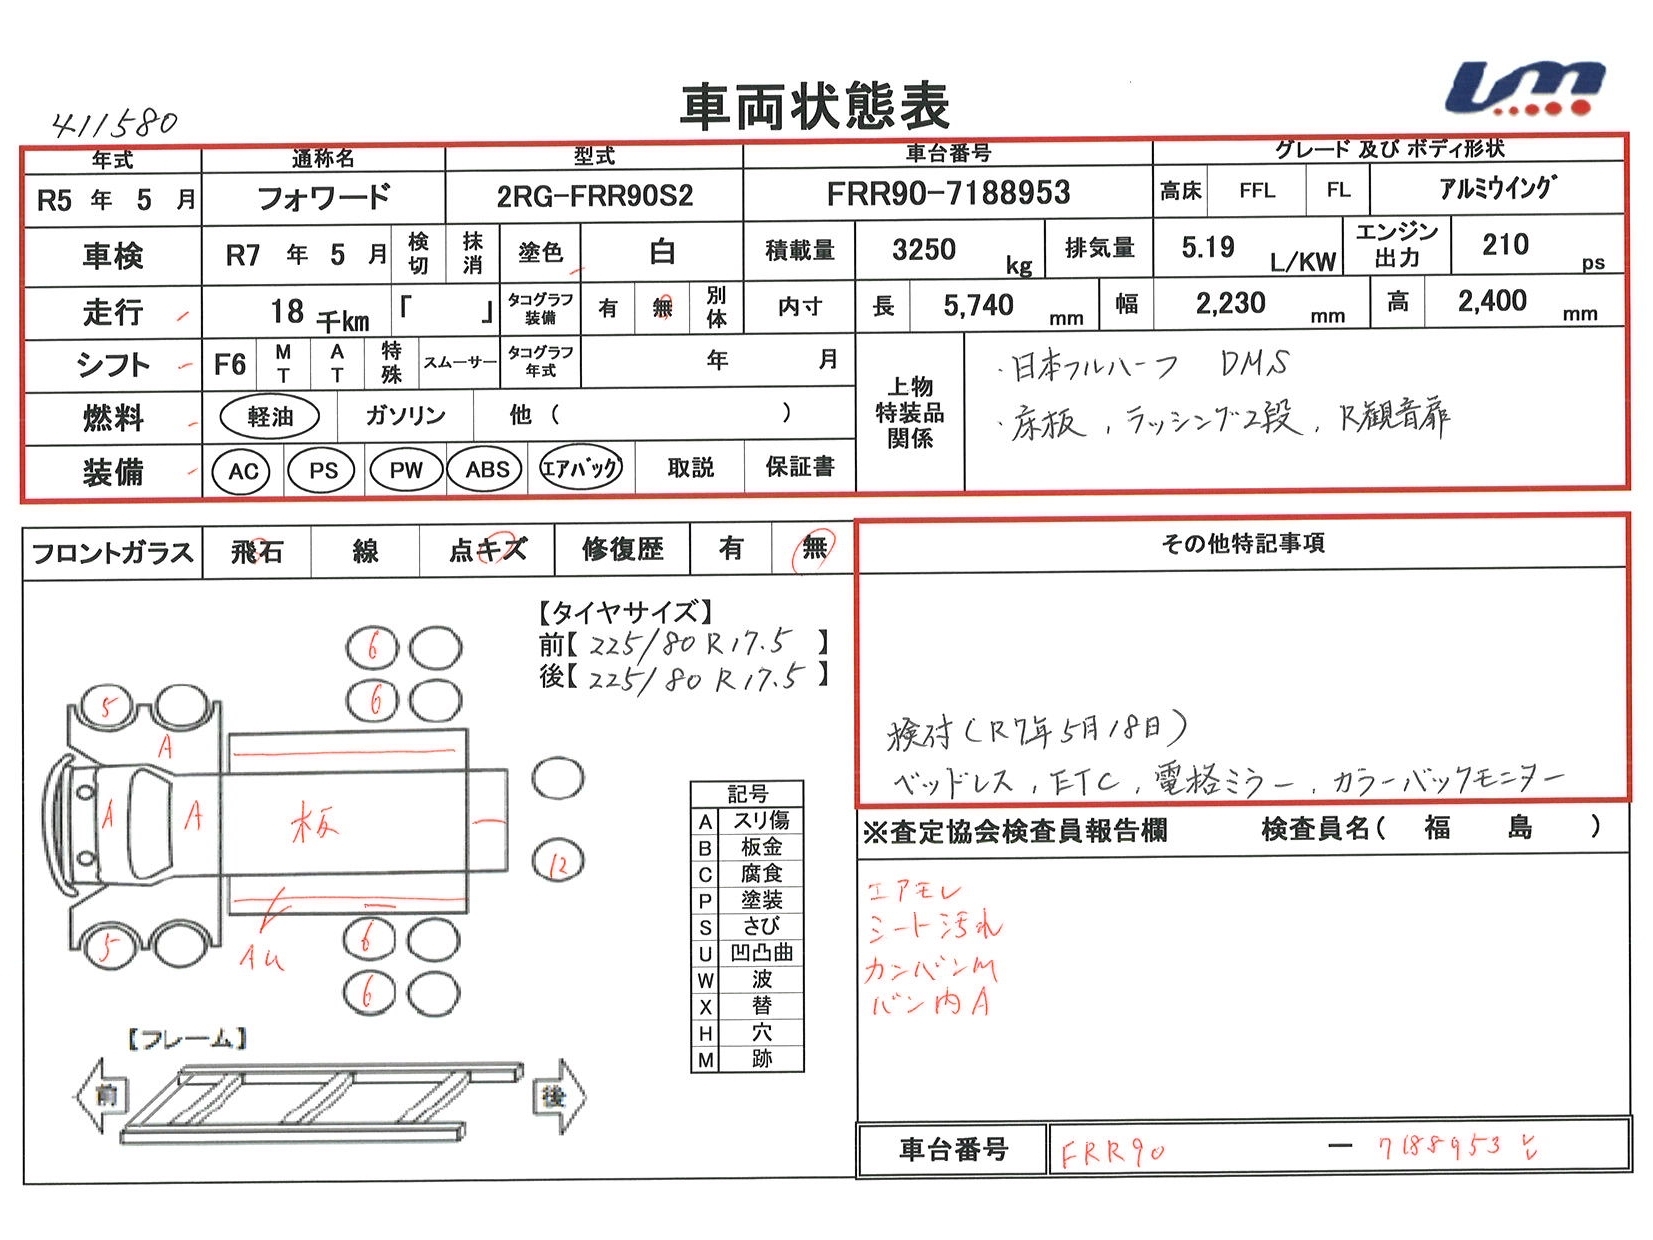 411580
車両状態表
UM
年式 通称名 型式 車台番号 グレード 及び ボディ形状
R5 年 5 月 フォワード 2RG-FRR90S2 FRR90-7188953 高床 FFL FL アルミウイング
車検 R7 年 5 月 検切 抹消 塗色 白 積載量 3250 kg 排気量 5.19 L/KW エンジン出力 210 ps
走行 18 千km 「 」 タコグラフ装備 有 無 別体 内寸 長 5,740 mm 幅 2,230 mm 高 2,400 mm
シフト F6 MT AT 特殊 スムーサー タコグラフ年式 年 月
上物特装品関係
・日本フルハーフ DMS
・床板, ラッシング2段, R観音扉
燃料 軽油 ガソリン 他 ( )
装備 AC PS PW ABS エアバッグ 取説 保証書
フロントガラス 飛石 線 点キズ 修復歴 有 無
その他特記事項
検付(R7年5月18日)
ベッドレス, ETC, 電格ミラー, カラーバックモニター
【タイヤサイズ】
前【225/80 R17.5】
後【225/80 R17.5】
6
6
5
A
A A 板
12
5
6
6
Au
記号
A スリ傷
B 板金
C 腐食
P 塗装
S さび
U 凹凸曲
W 波
X 替
H 穴
M 跡
【フレーム】
前 後
※査定協会検査員報告欄 検査員名( 福 島 )
エアモレ
シート汚れ
カンバンM
バン内A
車台番号 FRR90 - 7188953